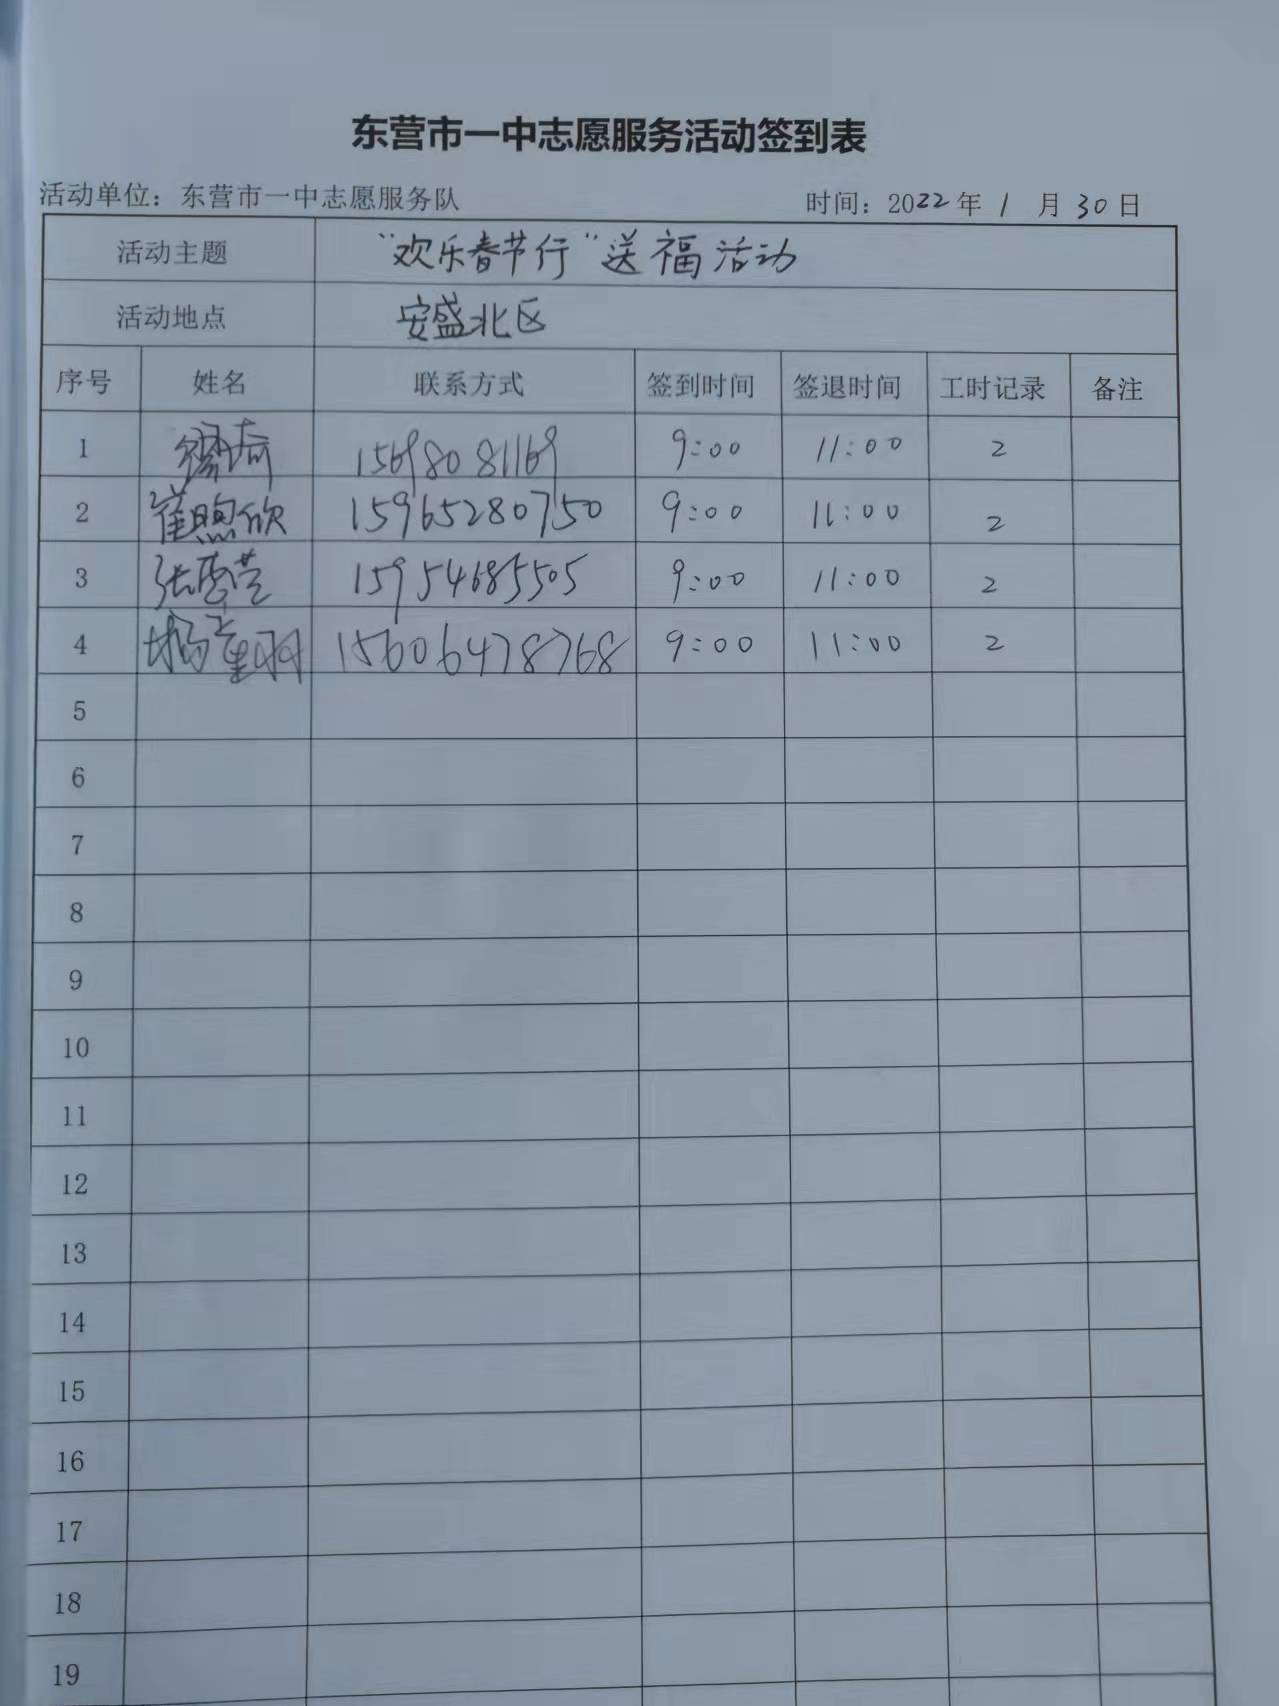 东营市一中志愿服务活动签到表
活动单位：东营市一中志愿服务队 时间：2022年1月30日
活动主题 “欢乐春节行”送福活动
活动地点 安盛北区
序号 姓名 联系方式 签到时间 签退时间 工时记录 备注
1 15698081169 9:00 11:00 2
2 崔煦欣 15965280750 9:00 11:00 2
3 张雪芸 15954685505 9:00 11:00 2
4 杨童羽 15606478768 9:00 11:00 2
5
6
7
8
9
10
11
12
13
14
15
16
17
18
19